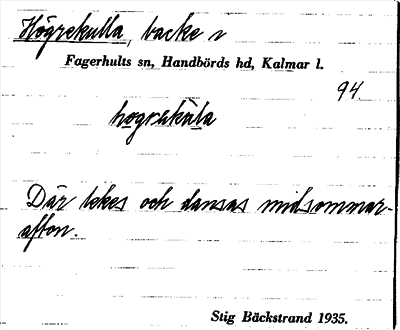 Högrekulla, backe v
Fagerhults sn, Handbörds hd, Kalmar l.
94.
hograkula
Där lekes och dansas midsommar-
afton.
Stig Bäckstrand 1935.